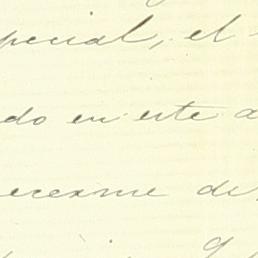 pecial, el
do en este a
erexme de